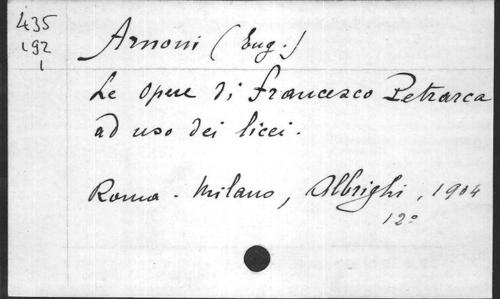 435
192
1
Arnoni (Eug.)
Le opere di Francesco Petrarca
ad uso dei licei.
Roma - Milano, Albrighi, 1904
12°